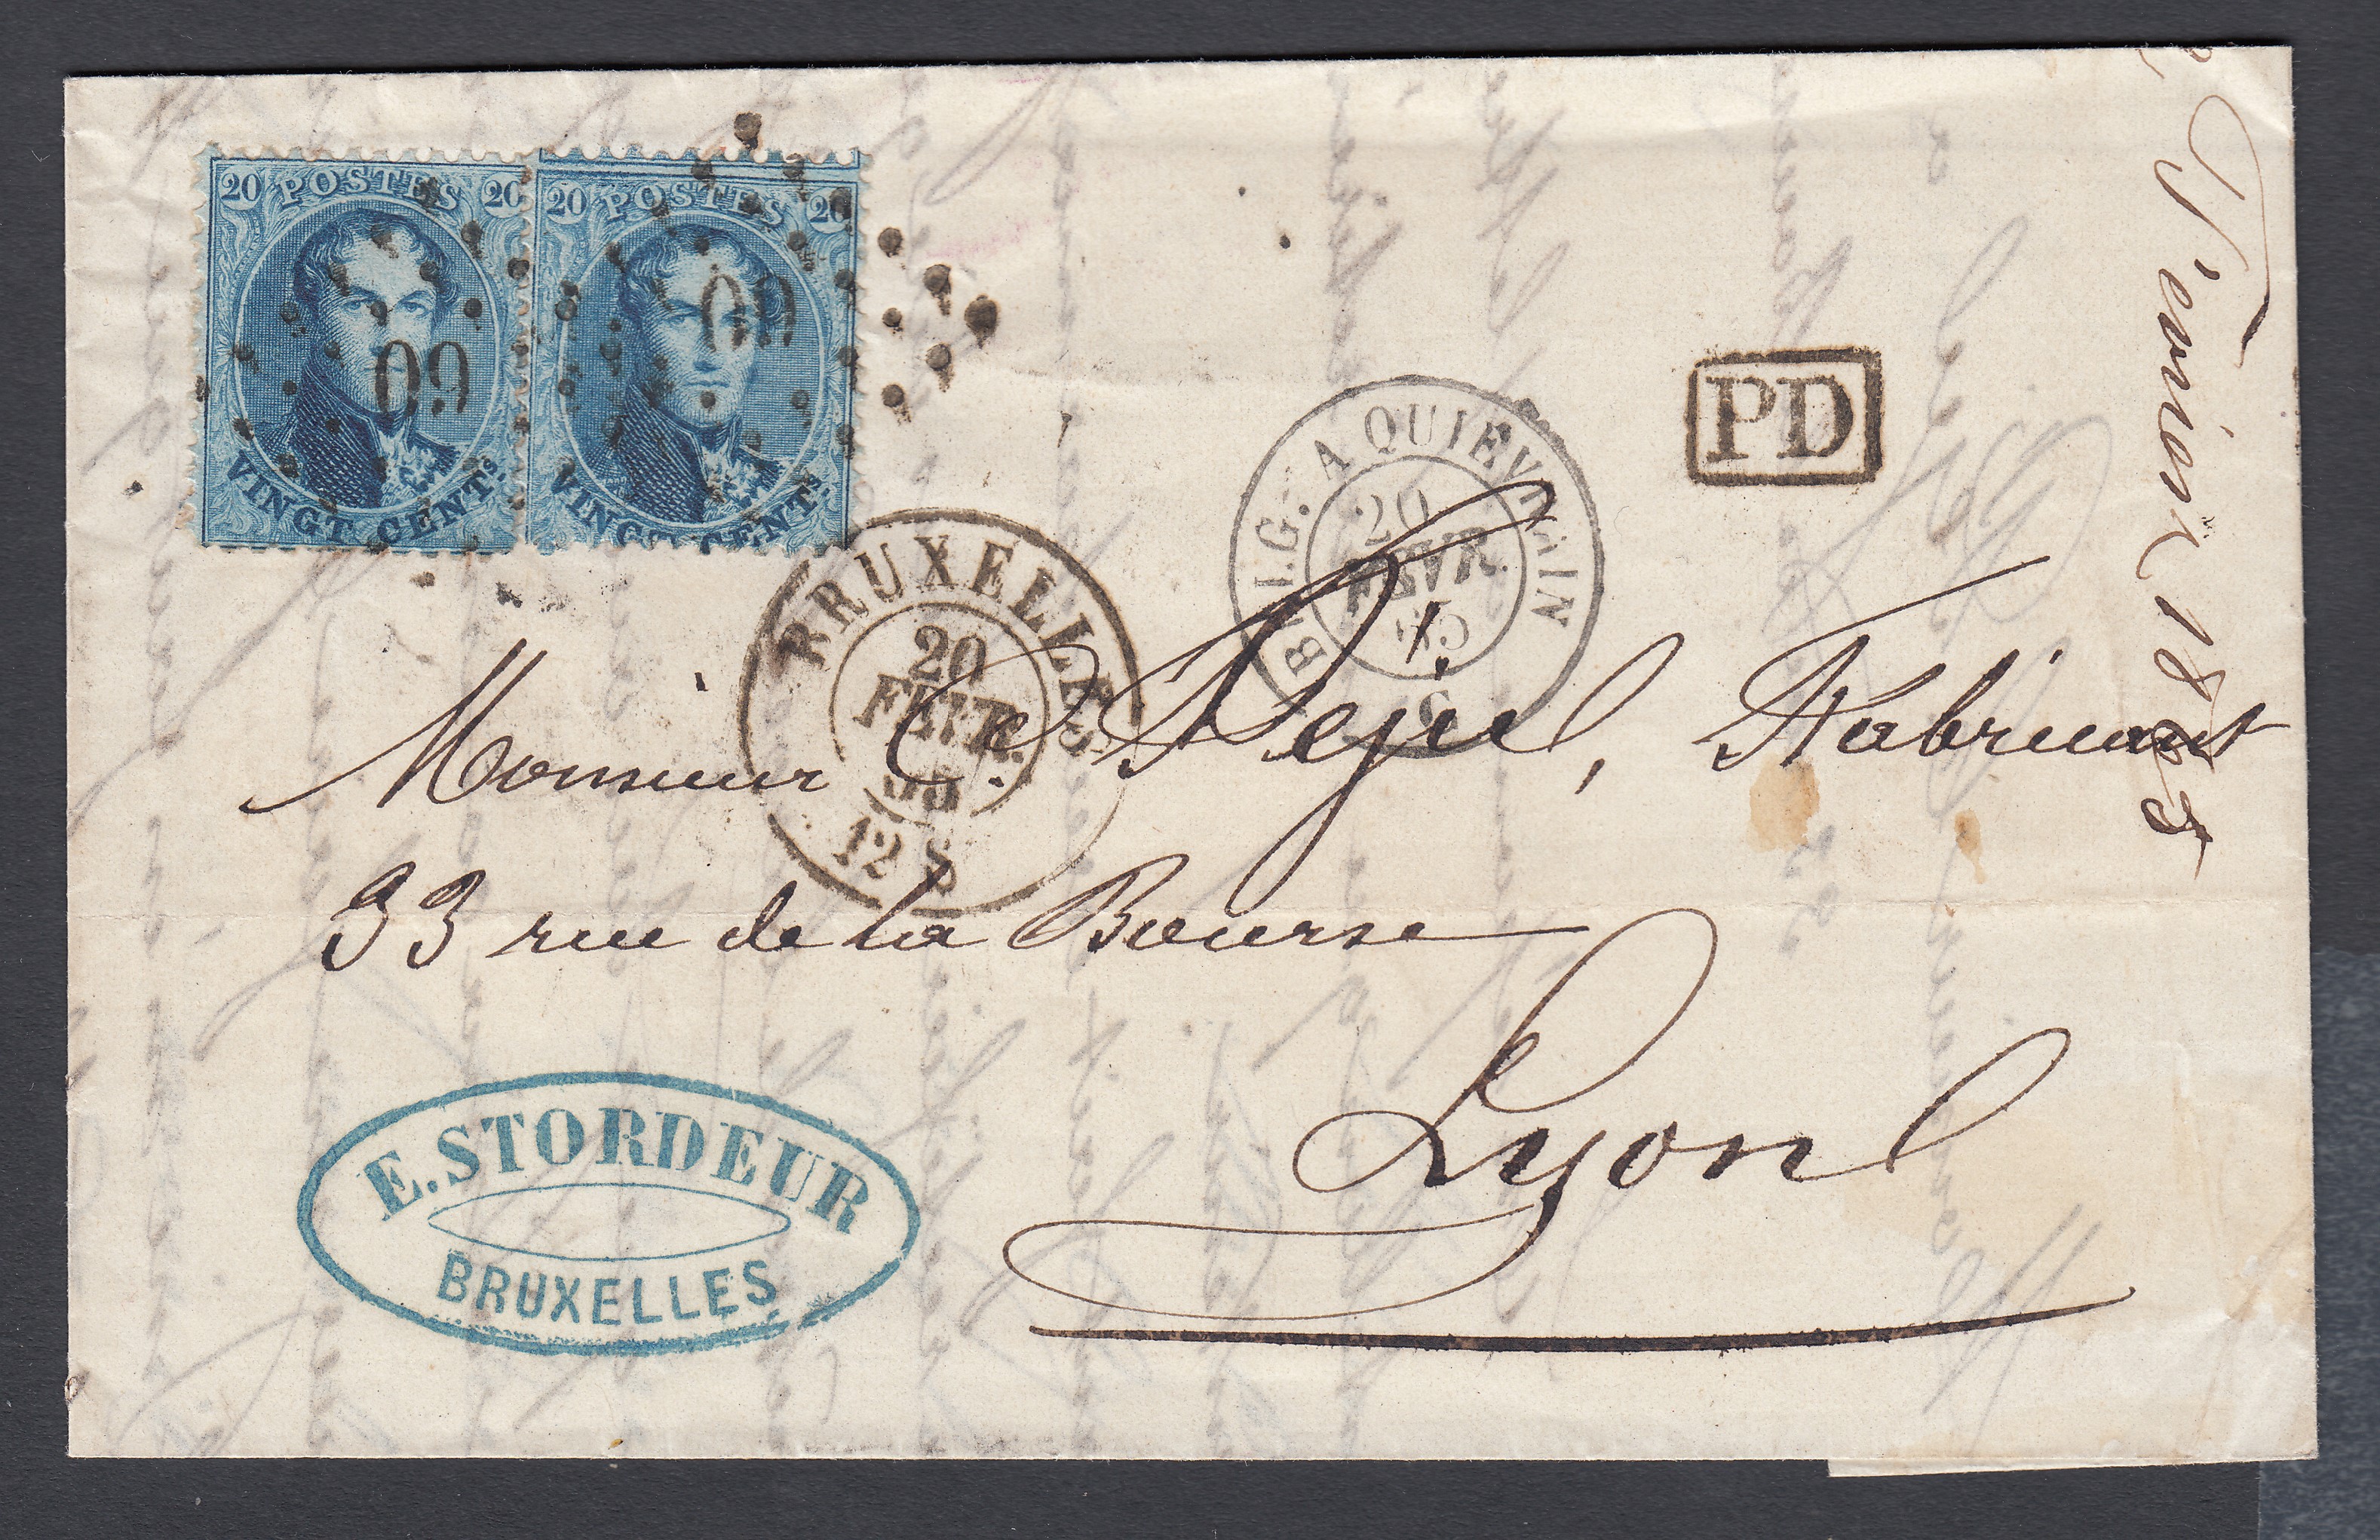 20 POSTES 20
60
VINGT CENTS.
20 POSTES 20
60
VINGT CENTS.
BRUXELLES
20
FEVR.
12 S
BELG. A QUIEVRAIN
20
FEVR.
65
PD
Février 1865
Monsieur C. Pejul, Fabricant
33 rue de la Bourse
Lyon
E. STORDEUR
BRUXELLES